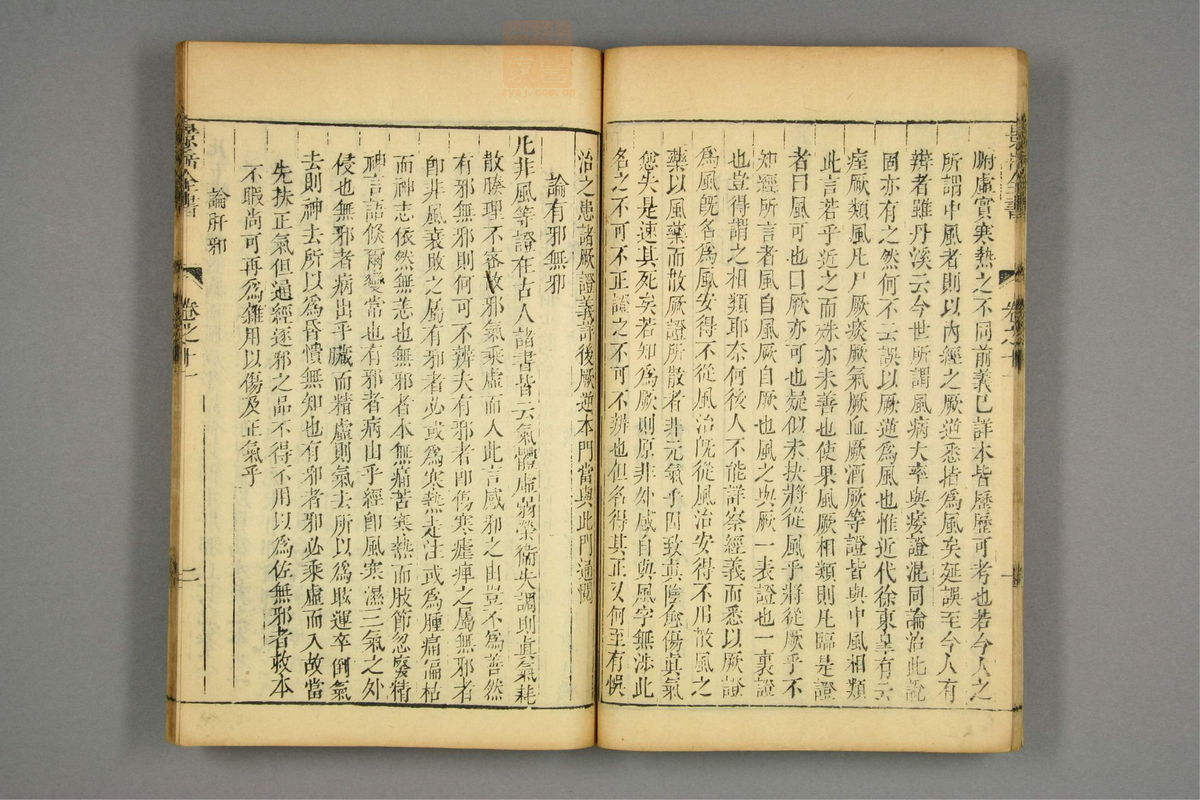 腑虛實寒熱之不同前義已詳本皆歷歷可考也若今人之
所謂中風者則以內經之厥逆悉指為風矣延誤至今人有
辨者雖丹溪云今世所謂風病大率與痿證混同論治此說
固亦有之然何不云誤以厥逆為風也惟近代徐東皐有云
痓厥類風凡尸厥痰厥氣厥血厥酒厥等證皆與中風相類
此言若乎近之而殊亦未善也使果風厥相類則凡臨是證
者曰風可也曰厥亦可也疑似未決將從風乎將從厥乎不
知經所言者風自風厥自厥也風之與厥一表證也一裏證
也豈得謂之相類耶奈何後人不能詳察經義而悉以厥證
為風既名為風安得不從風治既從風治安得不用散風之
藥以風藥而散厥證所散者非元氣乎因致真陰愈傷真氣
愈失是速其死矣若知為厥則原非外感自與風字無涉此
名之不可不正證之不可不辨也但名得其正又何至有悞
治之患諸厥證義詳後厥逆本門當與此門通閱
論有邪無邪
凡非風等證在古人諸書皆云氣體虛弱榮衛失調則真氣耗
散腠理不密故邪氣乘虛而入此言感邪之由豈不為善然
有邪無邪則何可不辨夫有邪者即傷寒瘧痺之屬無邪者
即非風衰敗之屬有邪者必或為寒熱走注或為腫痛偏枯
而神志依然無恙也無邪者本無痛苦寒熱而肢節忽廢精
神言語倏爾變常也有邪者病由乎經即風寒濕三氣之外
侵也無邪者病出乎臟而精虛則氣去所以為眩運卒倒氣
去則神去所以為昏憒無知也有邪者邪必乘虛而入故當
先扶正氣但通經逐邪之品不得不用以為佐無邪者救本
不暇尚可再為雜用以傷及正氣乎
論肝邪
景岳全書
卷之十一
二